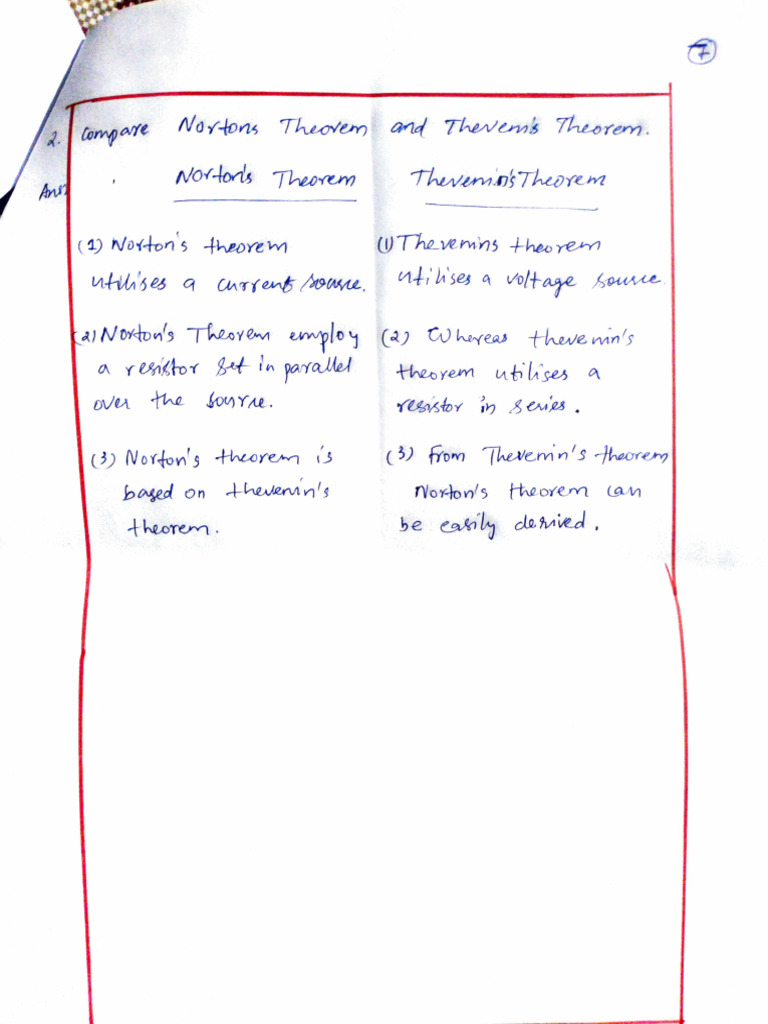 7
2. Compare Nortons Theorem and Thevenin's Theorem.
Ans: Norton's Theorem Thevenin's Theorem
(1) Norton's theorem
utilises a current source.
(2) Norton's Theorem employ
a resistor set in parallel
over the source.
(3) Norton's theorem is
based on thevenin's
theorem.
(1) Thevenins theorem
utilises a voltage source.
(2) Whereas thevenin's
theorem utilises a
resistor in series.
(3) From Thevenin's theorem
Norton's theorem can
be easily derived.